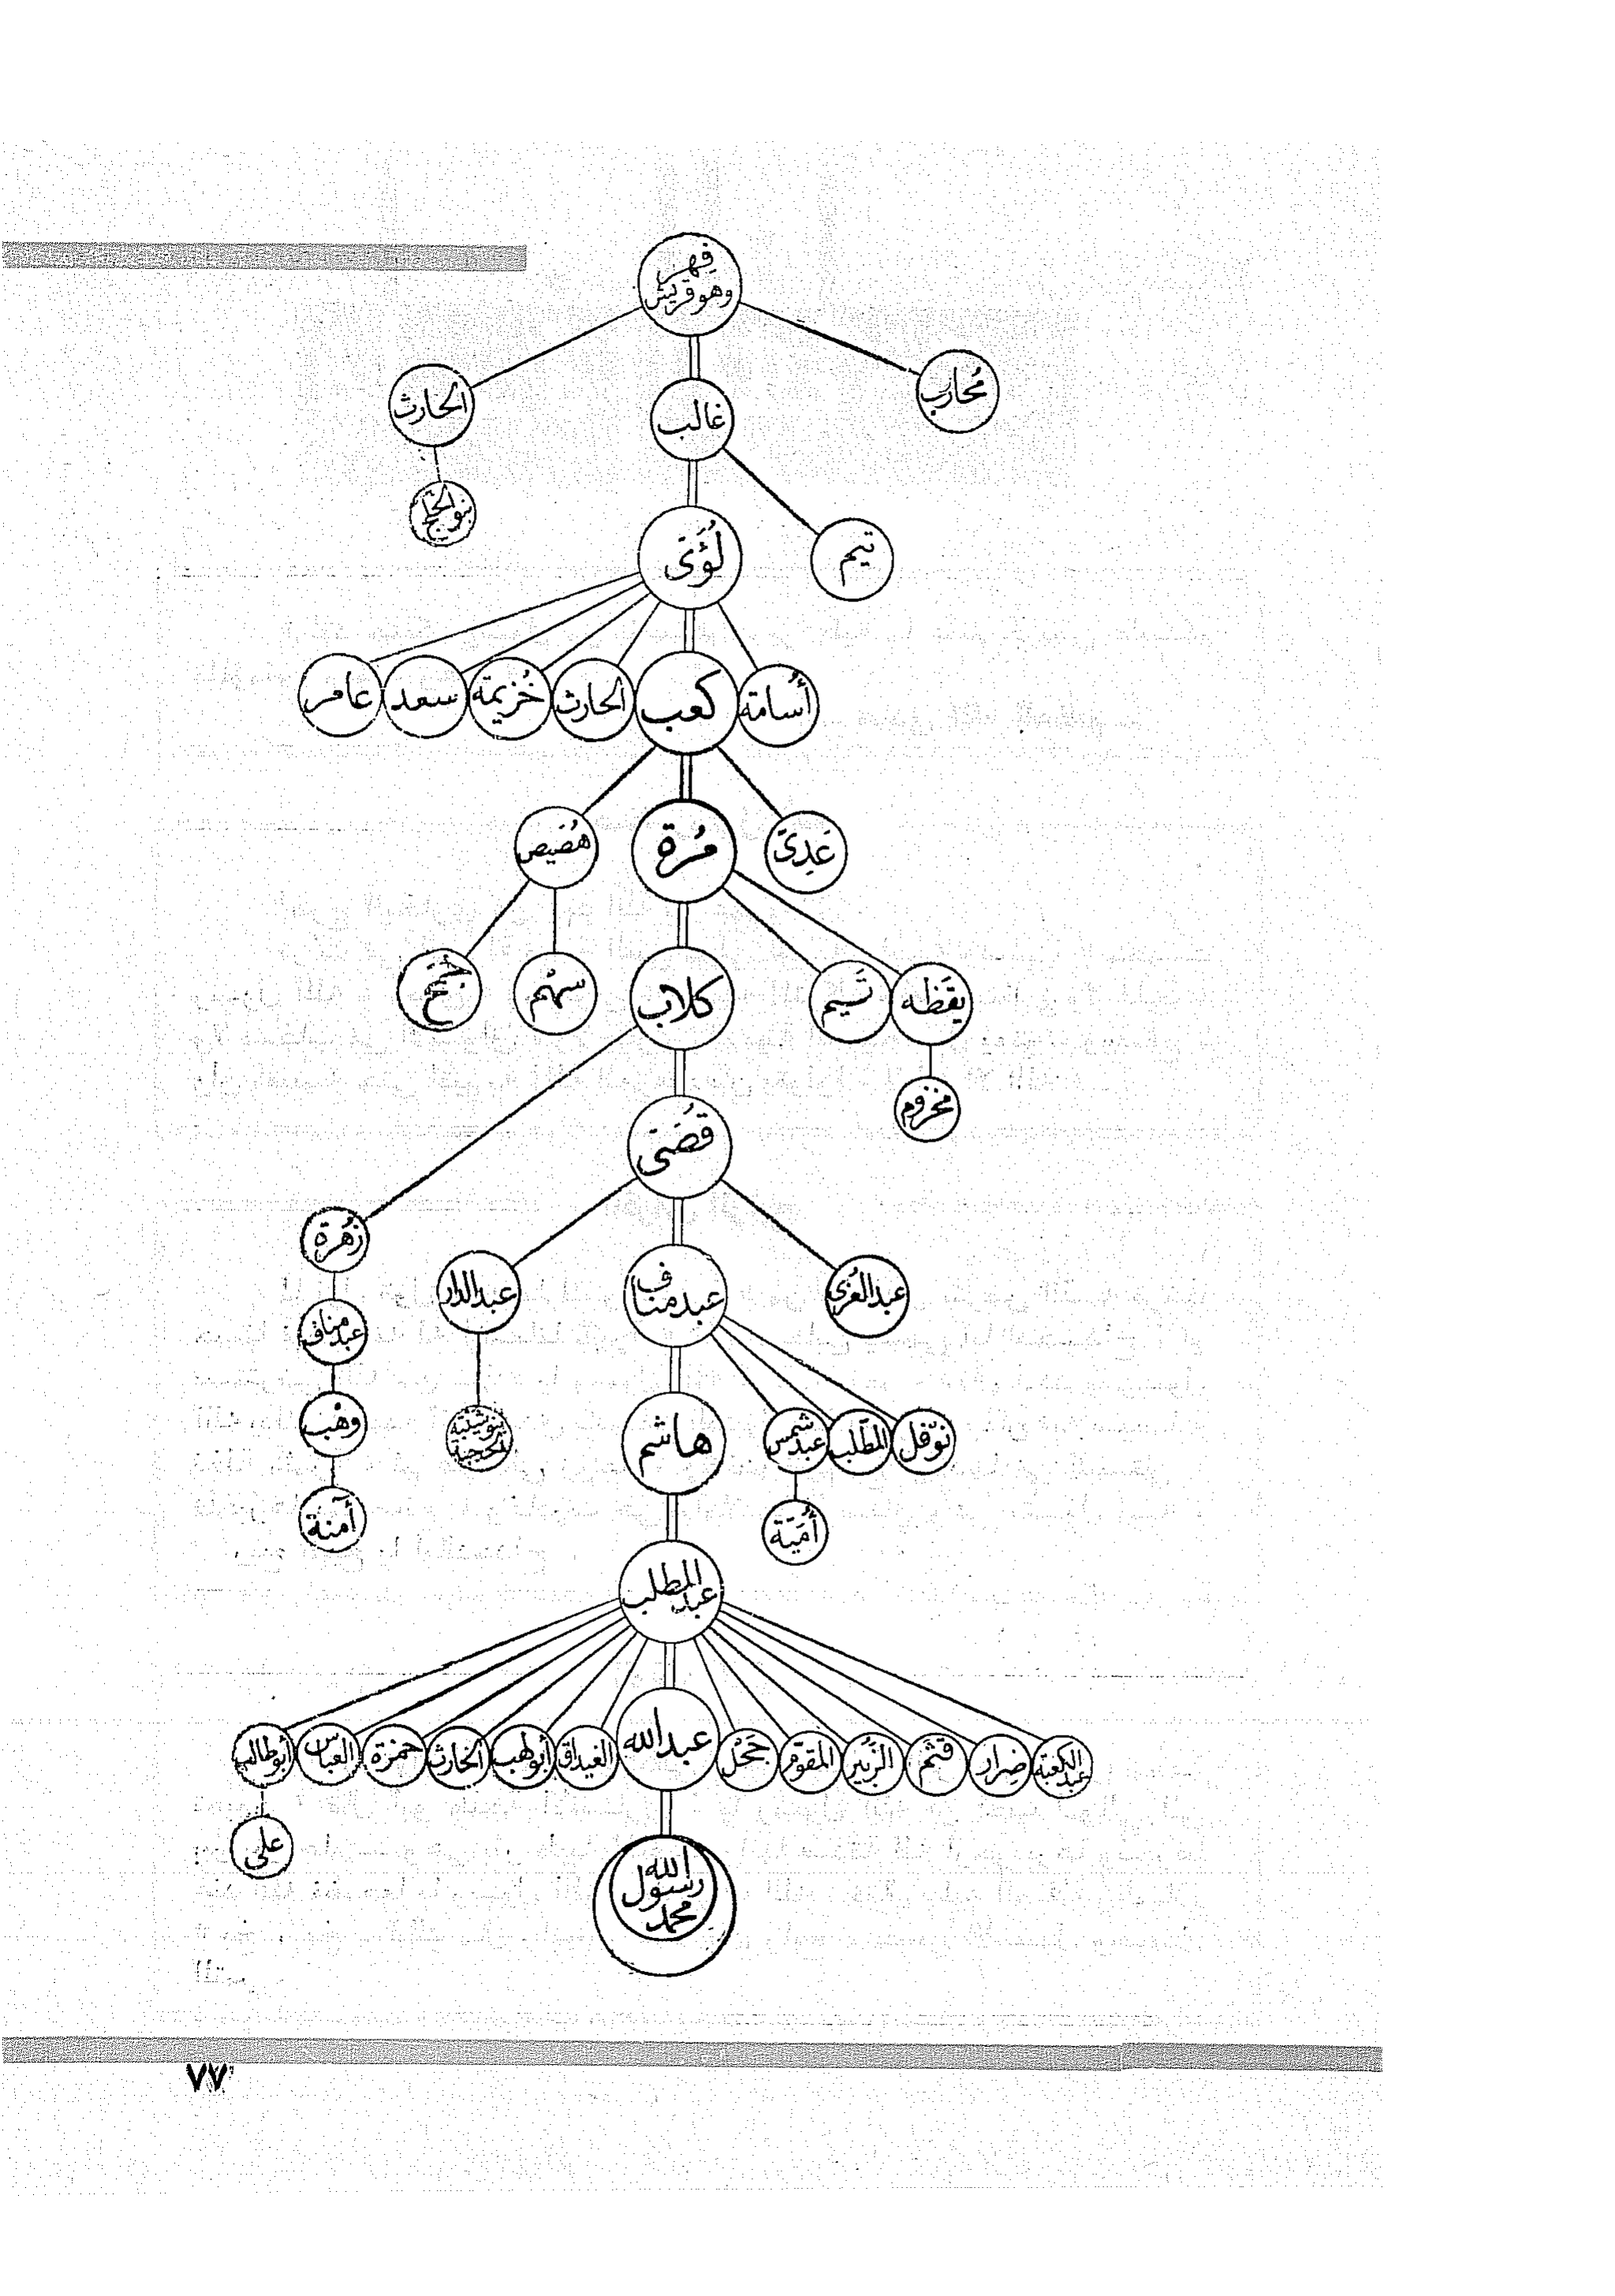 فِهر
وهو قريش
مُحارب
غالب
الحارث
بنو الخلج
تيم
لُؤَىّ
أُسامة
كعب
الحارث
خُزيمة
سعد
عامر
عَدِىّ
مُرة
هُصَيص
يقَظه
تَيم
كلاب
سهْم
جُمَح
مخزوم
قُصَى
زُهرة
عبد العُزى
عبد مناف
عبد الدار
عبد مناف
نوفل
المطّلب
عبد شمس
هاشم
بنو شيبة
الحجبة
وهْب
أُمَيّة
آمنة
عبد المطلب
عبد الكعبة
ضِرار
قثم
الزُّبير
المقوّم
جَحْل
عبد الله
الغيداق
أبو لهب
الحارث
حمزة
العباس
أبو طالب
على
الله
رسول
محمد
٧٧